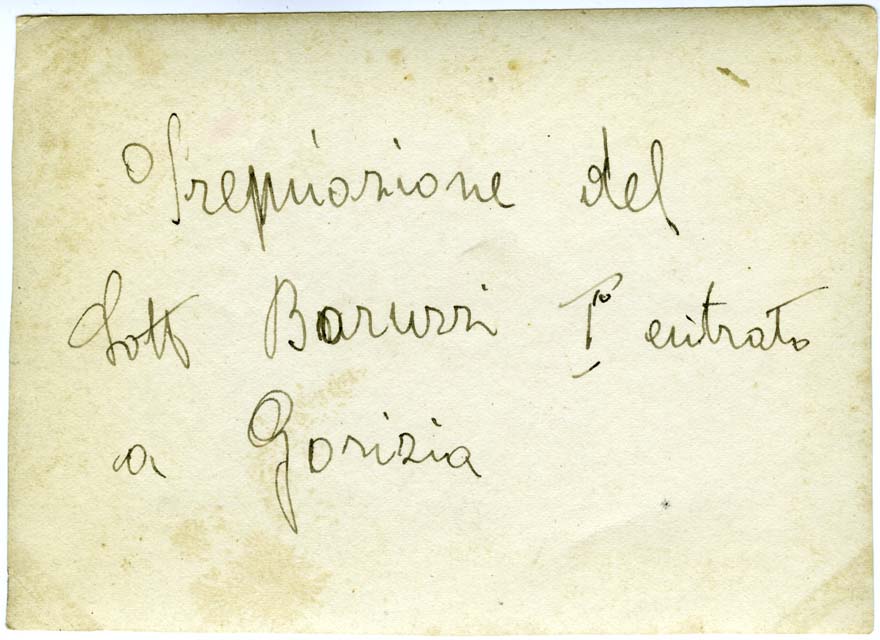 Premiazione del
Sott Baruzzi 1° entrato
a Gorizia